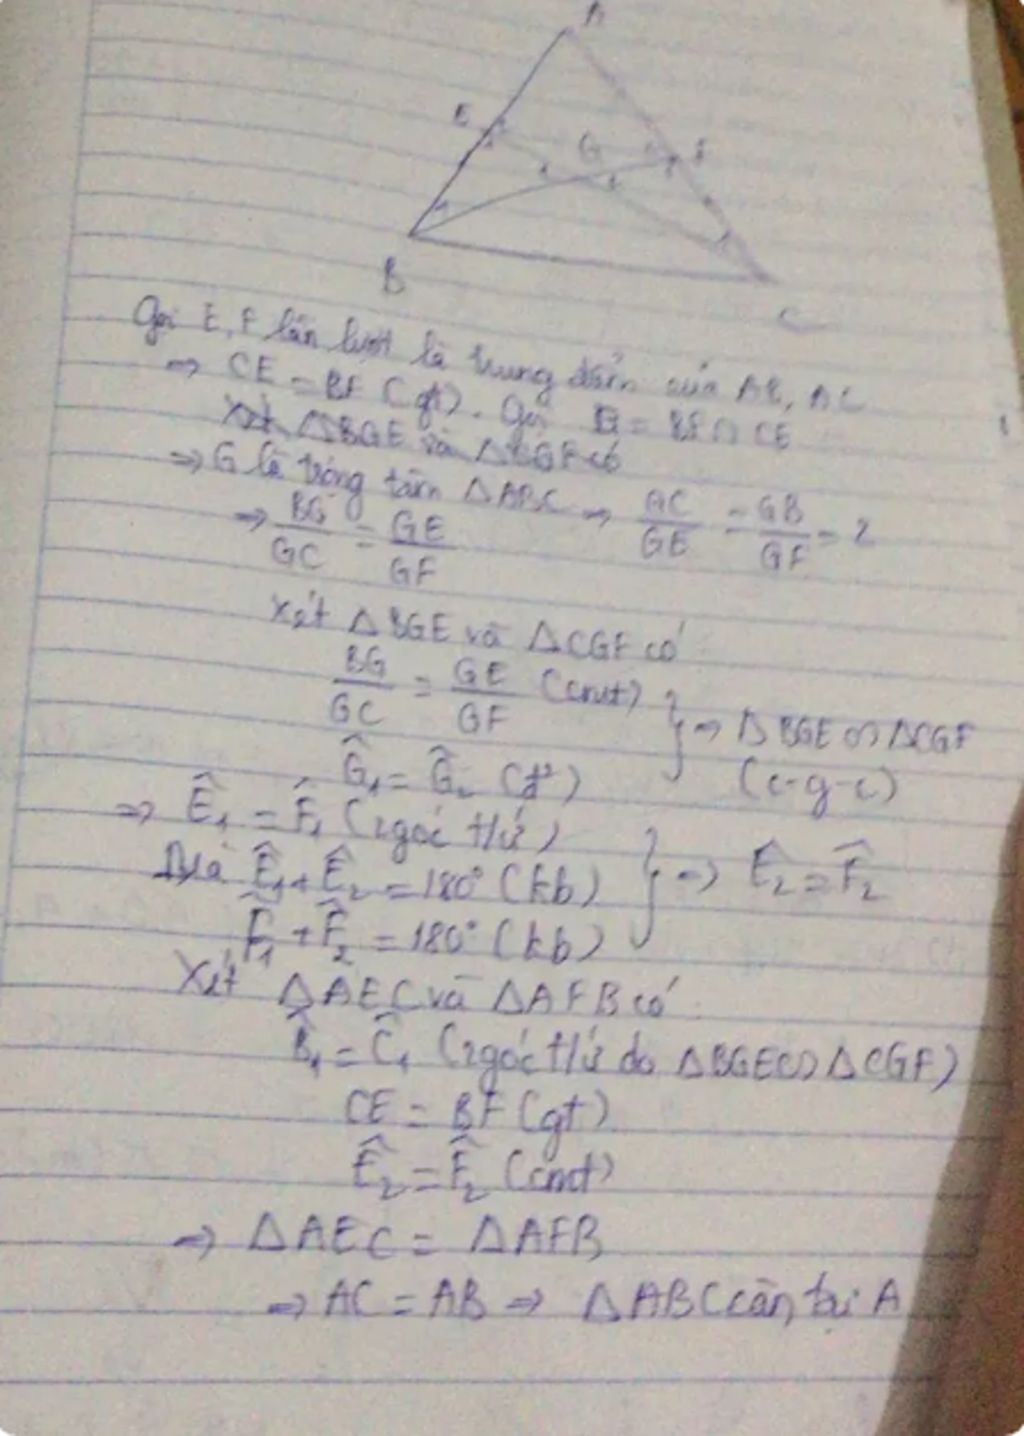 A
E
G
F
B
C
Gọi E, F lần lượt là trung điểm của AB, AC
=> CE = BF (gt). Gọi G = BF ∩ CE
Xét △BGE và △CGF có
=> G là trọng tâm △ABC => GC/GE = GB/GF = 2
=> BG/GC = GE/GF
Xét △BGE và △CGF có
BG/GC = GE/GF (cmt)
Ĝ₁ = Ĝ₂ (đ²)
} => △BGE ∽ △CGF
(c-g-c)
=> Ê₁ = F̂₁ (2góc t/ứ)
Mà Ê₁ + Ê₂ = 180° (kb)
F̂₁ + F̂₂ = 180° (kb)
} => Ê₂ = F̂₂
Xét △AEC và △AFB có
B̂₁ = Ĉ₁ (2góc t/ứ do △BGE ∽ △CGF)
CE = BF (gt)
Ê₂ = F̂₂ (cmt)
=> △AEC = △AFB
=> AC = AB => △ABC cân tại A